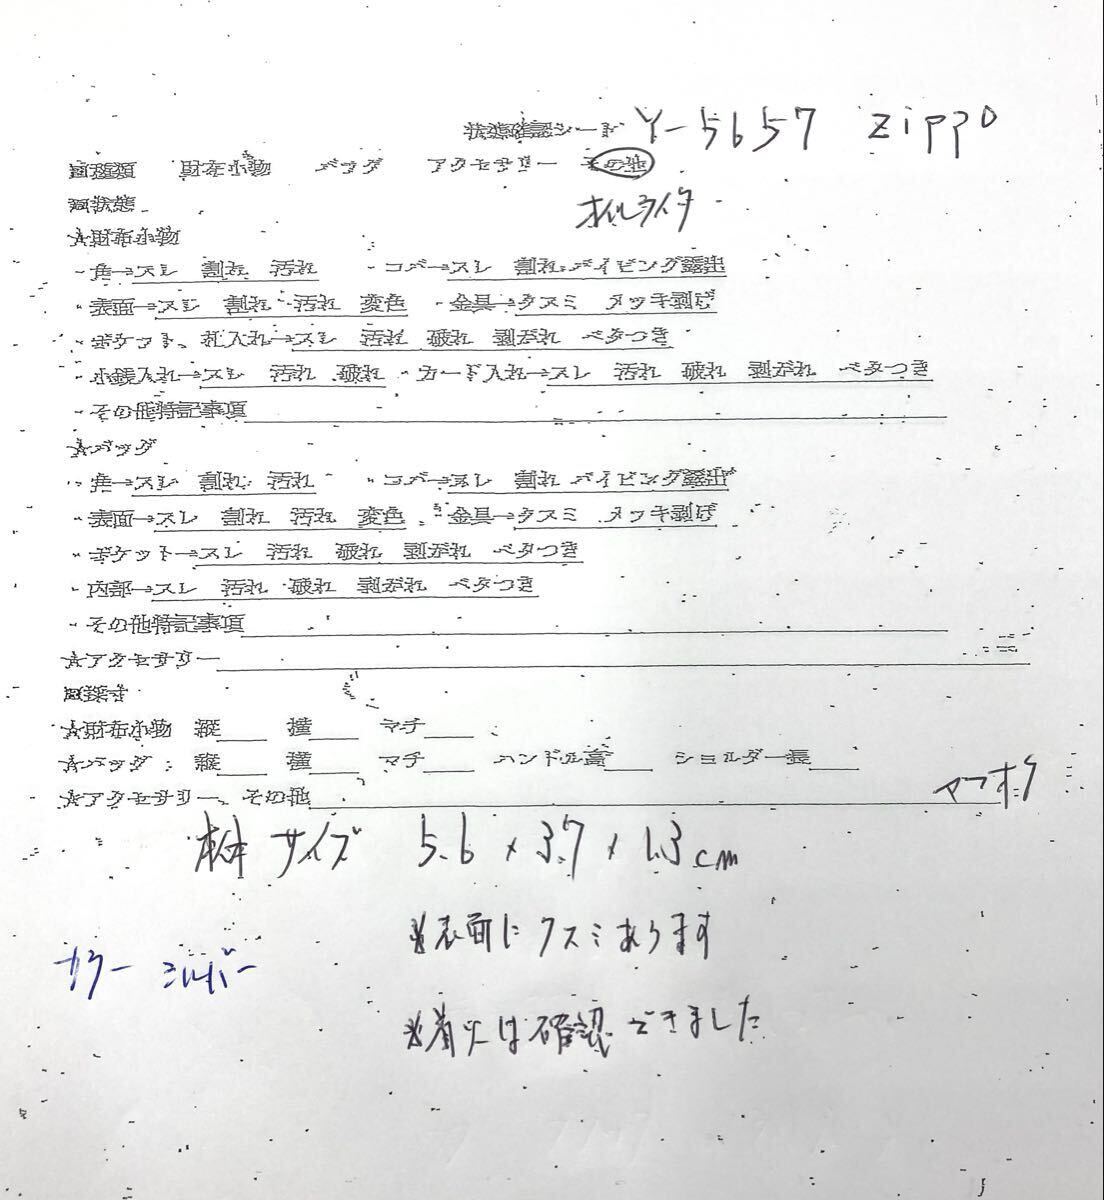 状態確認シート Y-5657 zippo
□種類 財布小物 バッグ アクセサリー その他
オイルライター
□状態
☆財布小物
・角→スレ 割れ 汚れ ・コバ→スレ 割れ パイピング露出
・表面→スレ 割れ 汚れ 変色 ・金具→クスミ メッキ剥げ
・ポケット、札入れ→スレ 汚れ 破れ 剥がれ ベタつき
・小銭入れ→スレ 汚れ 破れ ・カード入れ→スレ 汚れ 破れ 剥がれ ベタつき
・その他特記事項
☆バッグ
・角→スレ 割れ 汚れ ・コバ→スレ 割れ パイピング露出
・表面→スレ 割れ 汚れ 変色 ・金具→クスミ メッキ剥げ
・ポケット→スレ 汚れ 破れ 剥がれ ベタつき
・内部→スレ 汚れ 破れ 剥がれ ベタつき
・その他特記事項
☆アクセサリー
□採寸
☆財布小物 縦 横 マチ
☆バッグ: 縦 横 マチ ハンドル高 ショルダー長
☆アクセサリー、その他
本体サイズ 5.6×3.7×1.3cm
※表面にクスミあります
カラー シルバー
※着火は確認できました